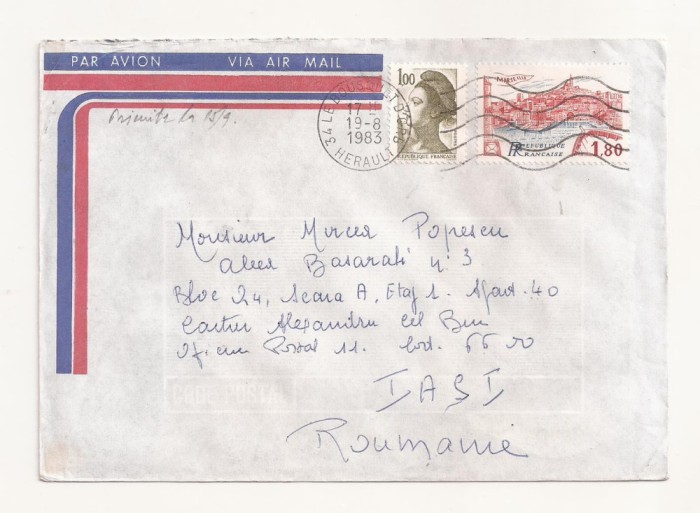 PAR AVION VIA AIR MAIL
1.00
REPUBLIQUE FRANÇAISE
34 LE BOUSQUET D'ORB
17 H
19-8
1983
HERAULT
RF REPUBLIQUE
FRANÇAISE
1,80
15/9.
Monsieur Mircea Popescu
Aleea Basarabi n: 3
Bloc 24, Scara A, Etaj 1. Apart. 40
Cartier Alexandru cel Bun
Oficiu Postal 11. Cod. 6600
IASI
Roumanie
CODE POSTAL